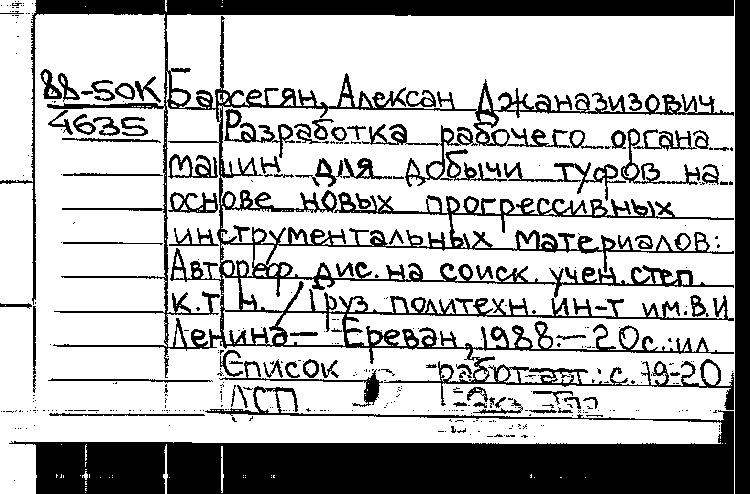 88-50К Барсегян, Алексан Джаназизович.
4635 Разработка рабочего органа
машин для добычи туфов на
основе новых прогрессивных
инструментальных материалов:
Автореф. дис. на соиск. учен. степ.
к. т н. / Груз. политехн. ин-т им. В.И
Ленина.— Ереван, 1988.— 20с.: ил.
Список работ авт.: с. 19-20
ДСП.